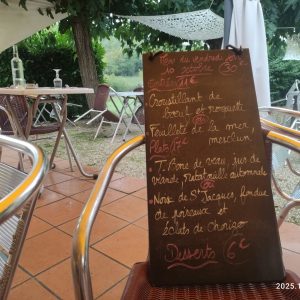 Menu du vendredi soir
10 octobre
Entrée 11€
Croustillant de
boeuf et roquette
Feuilleté de la mer,
mesclun
Plats 17€
• T. Bone de veau, jus de
viande, ratatouille automnale
• Noix de St Jacques, fondue
de poireaux et
éclats de Chorizo
Desserts 6€
2025.1